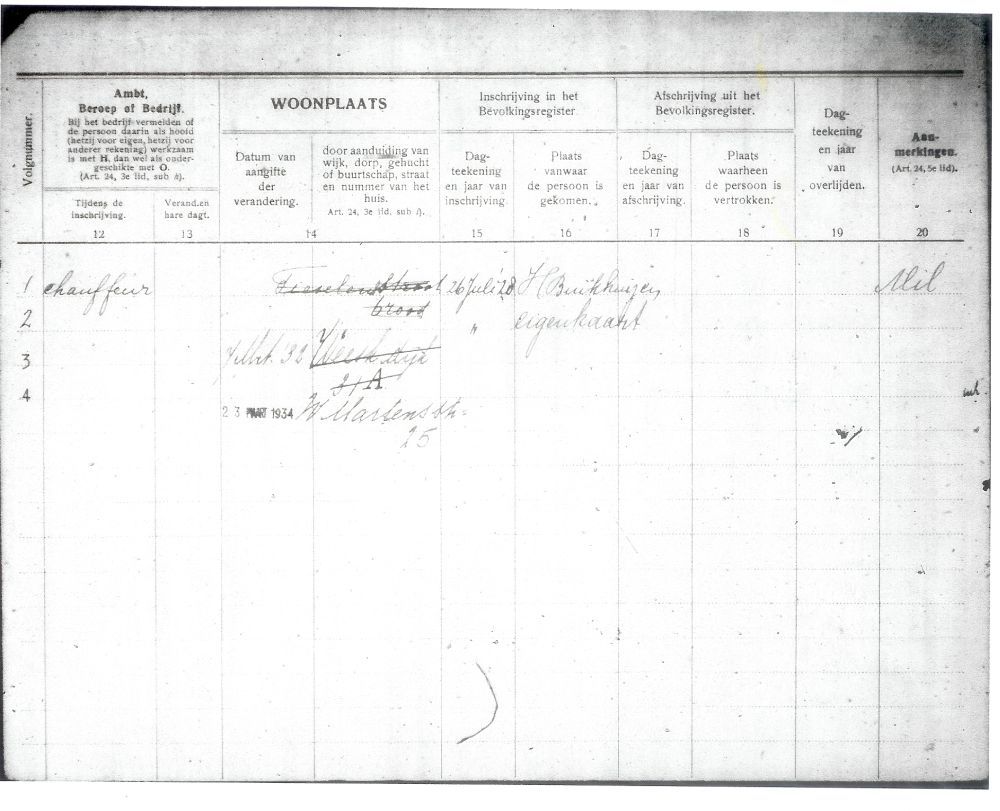 Volgnummer.
Ambt,
Beroep of Bedrijf.
Bij het bedrijf vermelden of
de persoon daarin als hoofd
(hetzij voor eigen, hetzij voor
anderer rekening) werkzaam
is met H, dan wel als onder-
geschikte met O.
(Art. 24, 3e lid, sub h).
Tijdens de
inschrijving.
12
Verand.en
hare dagt.
13
WOONPLAATS
Datum van
aangifte
der
verandering.
door aanduiding van
wijk, dorp, gehucht
of buurtschap, straat
en nummer van het
huis.
Art. 24, 3e lid, sub i).
14
Inschrijving in het
Bevolkingsregister.
Dag-
teekening
en jaar van
inschrijving.
15
Plaats
vanwaar
de persoon is
gekomen.
16
Afschrijving uit het
Bevolkingsregister.
Dag-
teekening
en jaar van
afschrijving.
17
Plaats
waarheen
de persoon is
vertrokken.
18
Dag-
teekening
en jaar
van
overlijden.
19
Aan-
merkingen.
(Art. 24, 5e lid).
20
1 chauffeur 26 Juli '28 H Buikhuijen Mil
2 " eigenkaart
3 Mrt. '32
4 21 A
23 MAART 1934 W Martensstr=
25